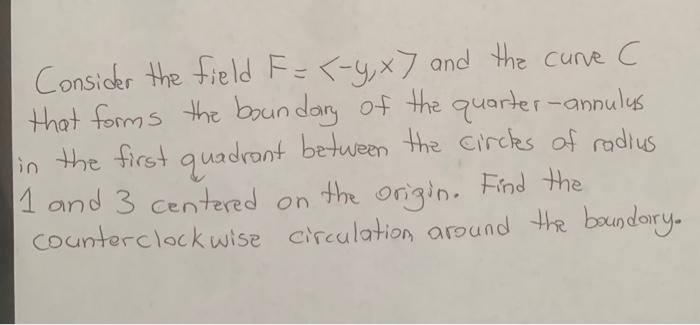 Consider the field F = <-y,x> and the curve C
that forms the boundary of the quarter-annulus
in the first quadrant between the circles of radius
1 and 3 centered on the origin. Find the
counterclockwise circulation around the boundary.